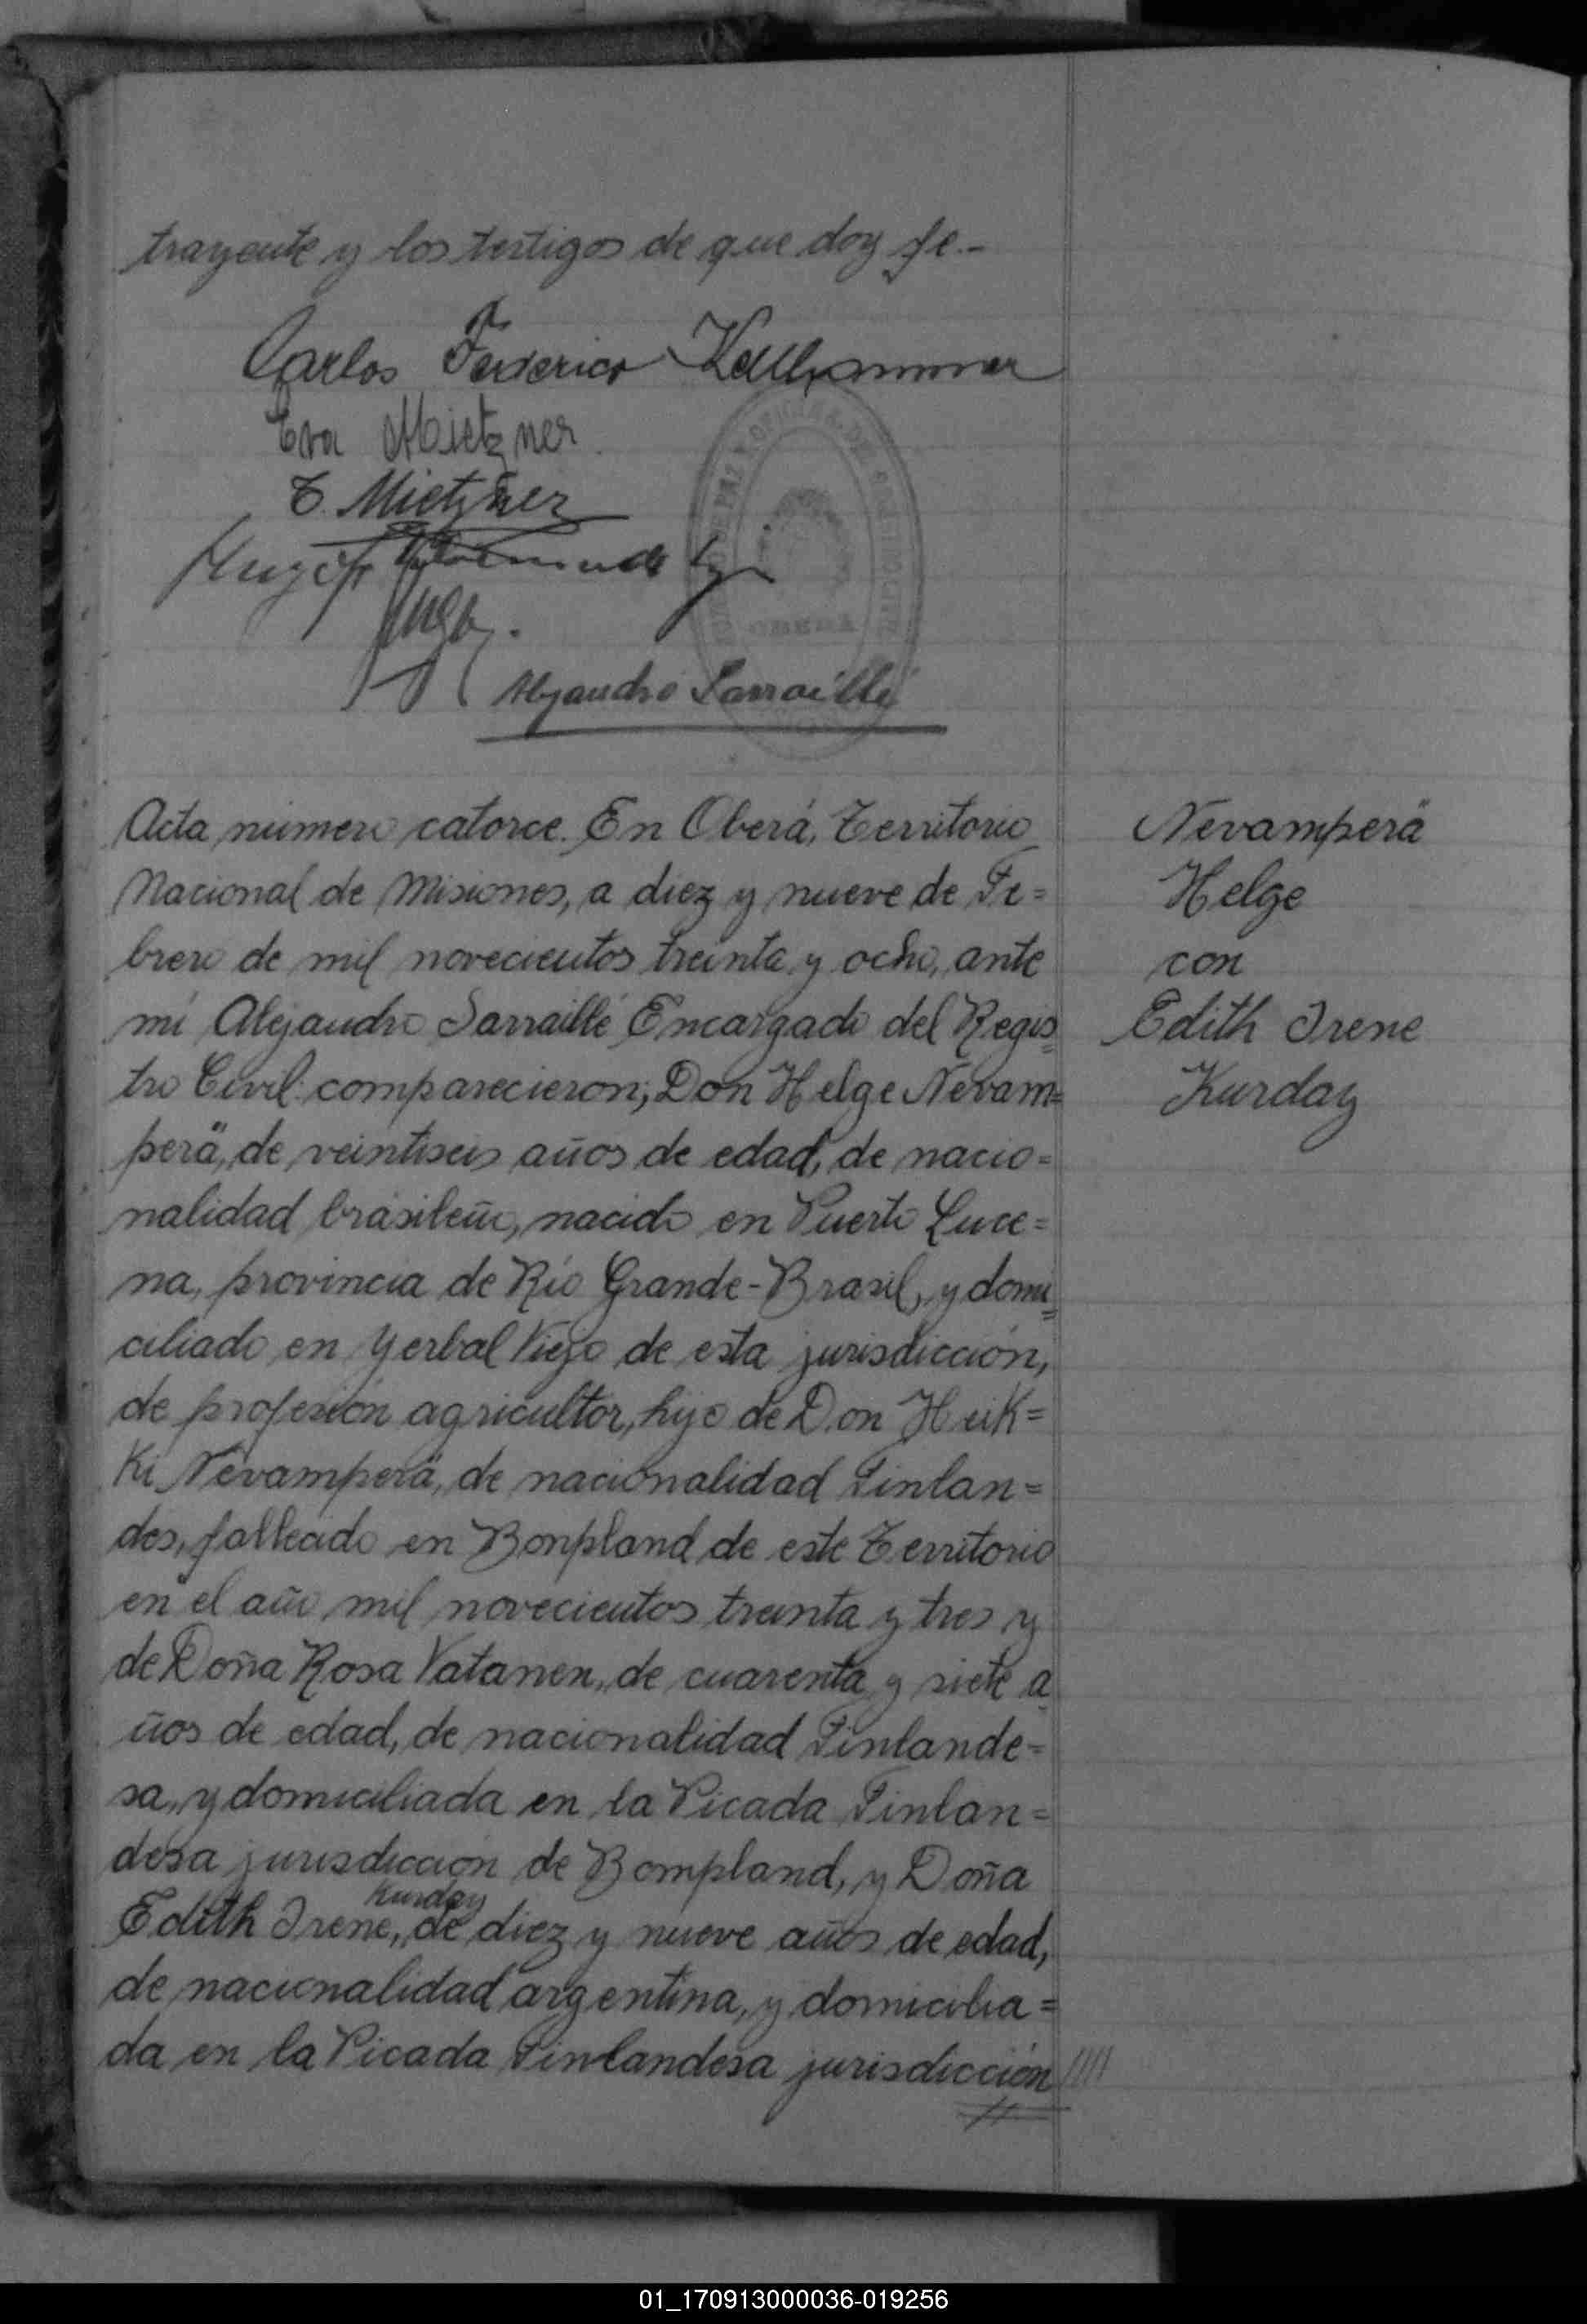 trayente y los testigos de que doy fe.-
Carlos Federico
Eva Mietzner
E. Mietzner
Alejandro Sarraillé
OBERÁ
Acta número catorce. En Oberá, Territorio
Nacional de Misiones, a diez y nueve de Fe=
brero de mil novecientos treinta y ocho, ante
mí Alejandro Sarraillé Encargado del Regis=
tro Civil: comparecieron; Don Helge Nevam=
perä, de veintiseis años de edad, de nacio=
nalidad brasileño, nacido en Puerto Luce=
na, provincia de Río Grande-Brasil, y domi=
ciliado en Yerbal Viejo de esta jurisdicción,
de profesión agricultor, hijo de Don Heik=
ki Nevamperä, de nacionalidad Finlan=
des, fallecido en Bonpland de este Territorio
en el año mil novecientos treinta y tres y
de Doña Rosa Vatanen, de cuarenta y siete a
ños de edad, de nacionalidad Finlande=
sa, y domiciliada en la Picada Finlan=
desa jurisdicción de Bompland, y Doña
Kurday
Edith Irene, de diez y nueve años de edad,
de nacionalidad argentina, y domicilia=
da en la Picada Finlandesa jurisdicción ////
Nevamperä
Helge
con
Edith Irene
Kurday
01_170913000036-019256